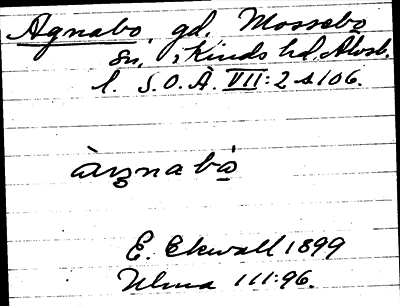 Agnabo, gd, Mossebo
sn, Kinds hd, Älvsb.
l. S.O.Ä. VII:2 s 106.
àŋnabò
E. Ekwall 1899
Ulma 111:96.